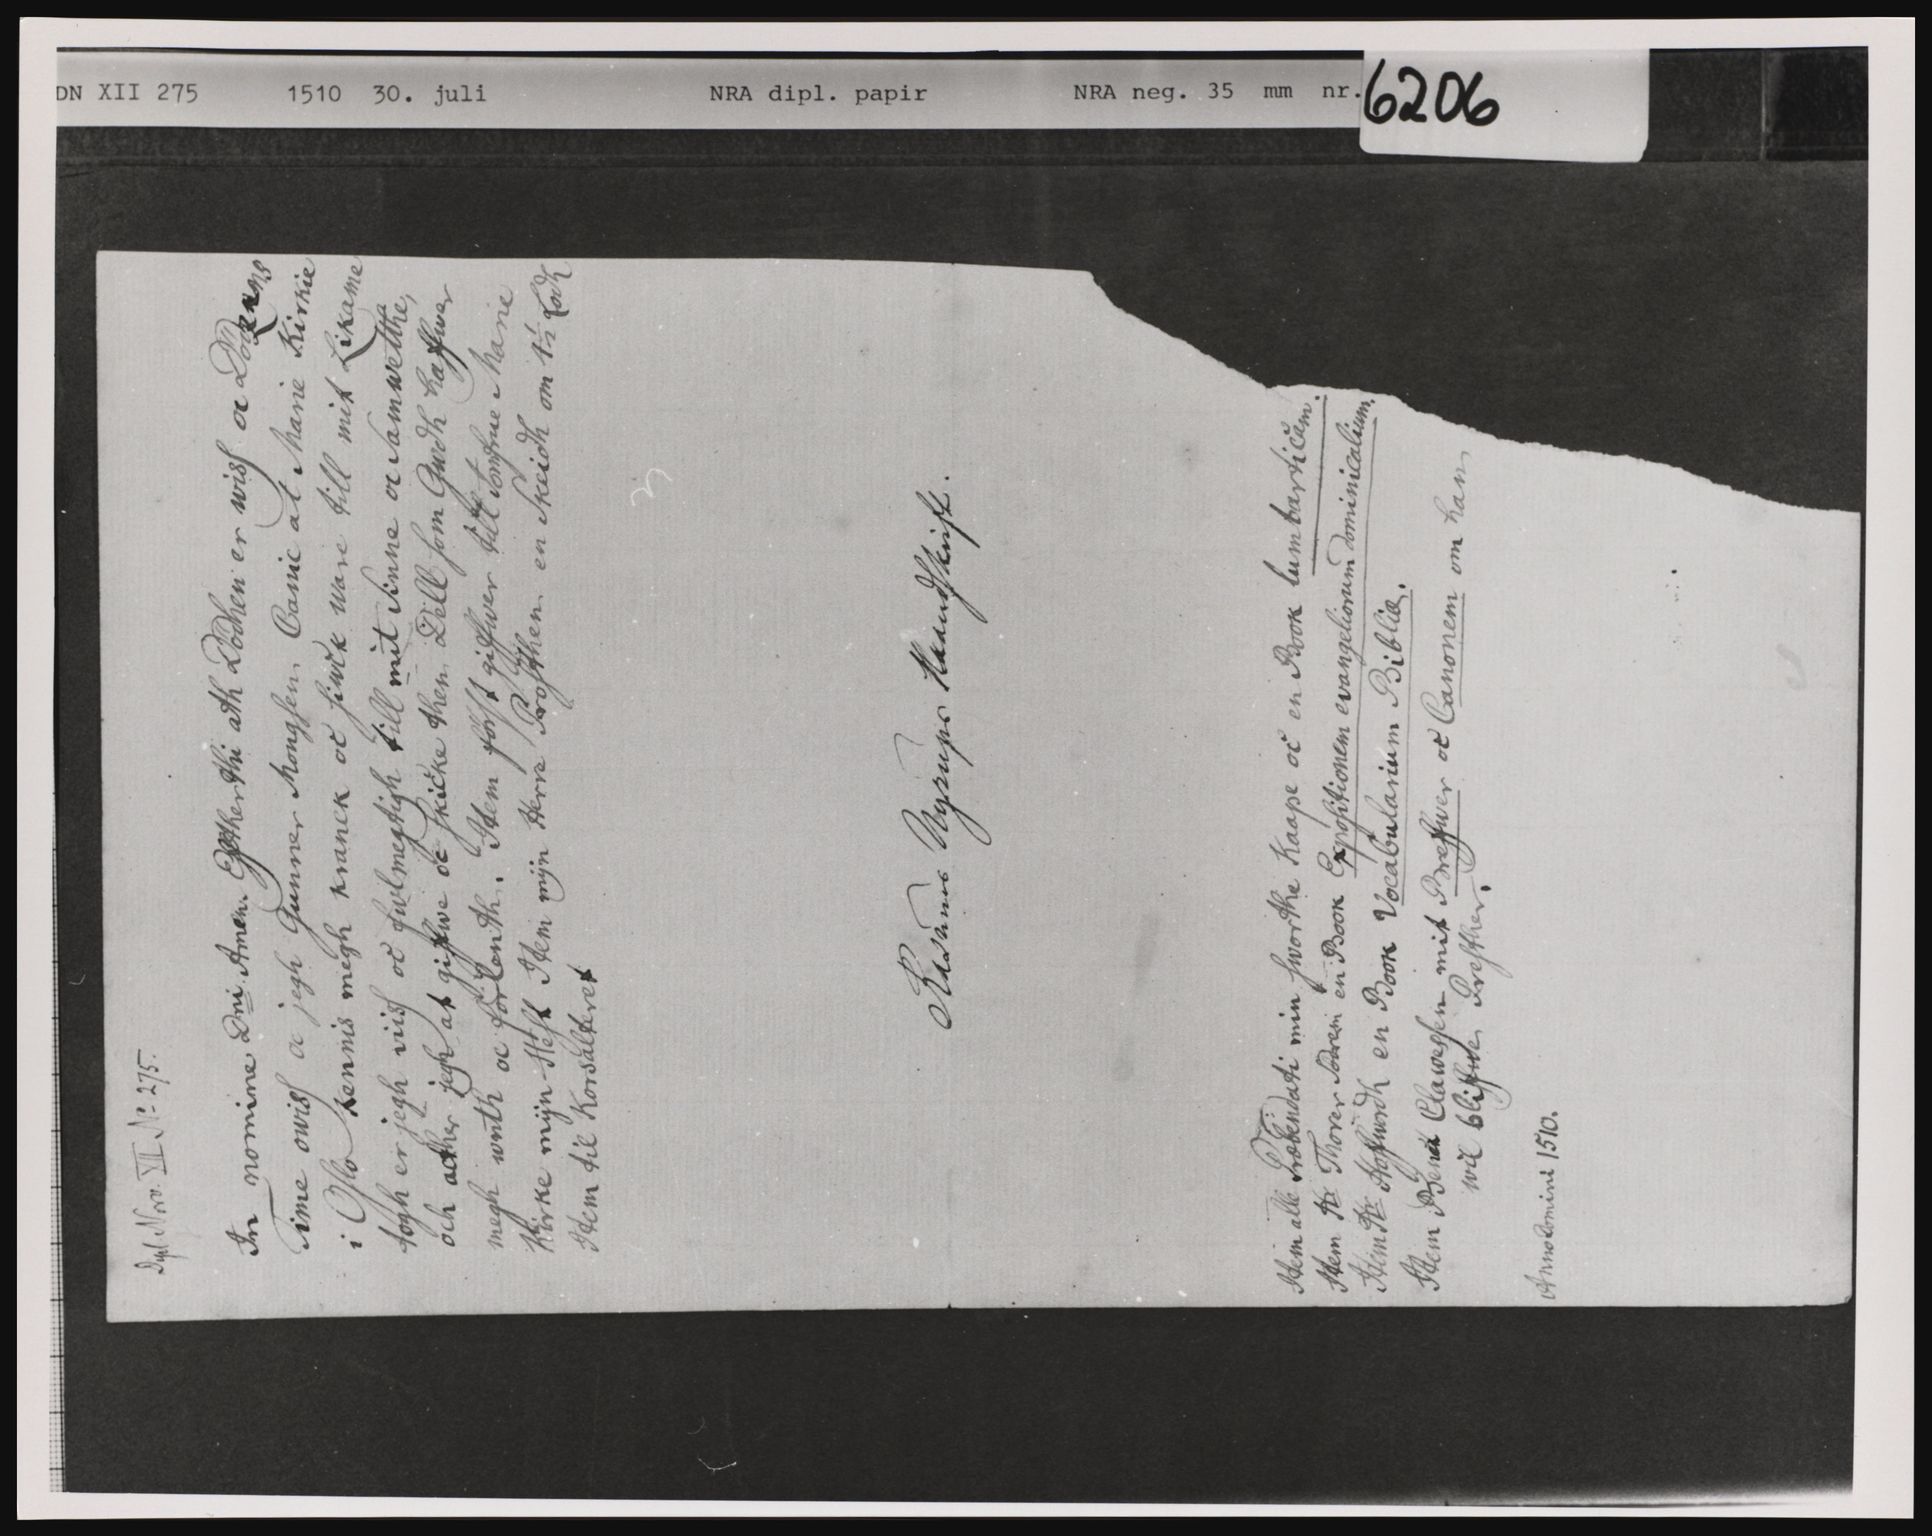 DN XII 275 1510 30. juli NRA dipl. papir NRA neg. 35 mm nr. 6206
Dipl. Norv. XII. No 275.
In nomine Dni. Amen. Epther thi ath Dödhen er wiss oc Dödzens
Time owiss oc jegh Gunner Mongsen Canic at Marie Kirkie
i Oslo kennis megh kranck oc siwck ware till mit Likame
togh er jegh viis oc fwlmegtigh till mit Sinne oc Samwetthe,
och acther jegh at giffwe oc skicke then Dell som Gwdh haffwer
megh wnth oc förlenth. Item först giffwer jeg till Jomfrue Marie
Kirke mijn Hest Item mijn Herre Prosthen en Skeidh om 1½ Lodh
Item til Korsalteret
Rasmus Nyrups Haandskrift.
Item alle Præbendati min sworthe Kaape oc en Book lumbarticam.
Item Hr Thorer en Book Expositionem evangeliorum dominicalium.
Item Hr en Book Vocabularium Bibliæ.
Item Clawessen mit Breffwer oc Canonem om han
wil bliffwe Presther.
Anno Domini 1510.